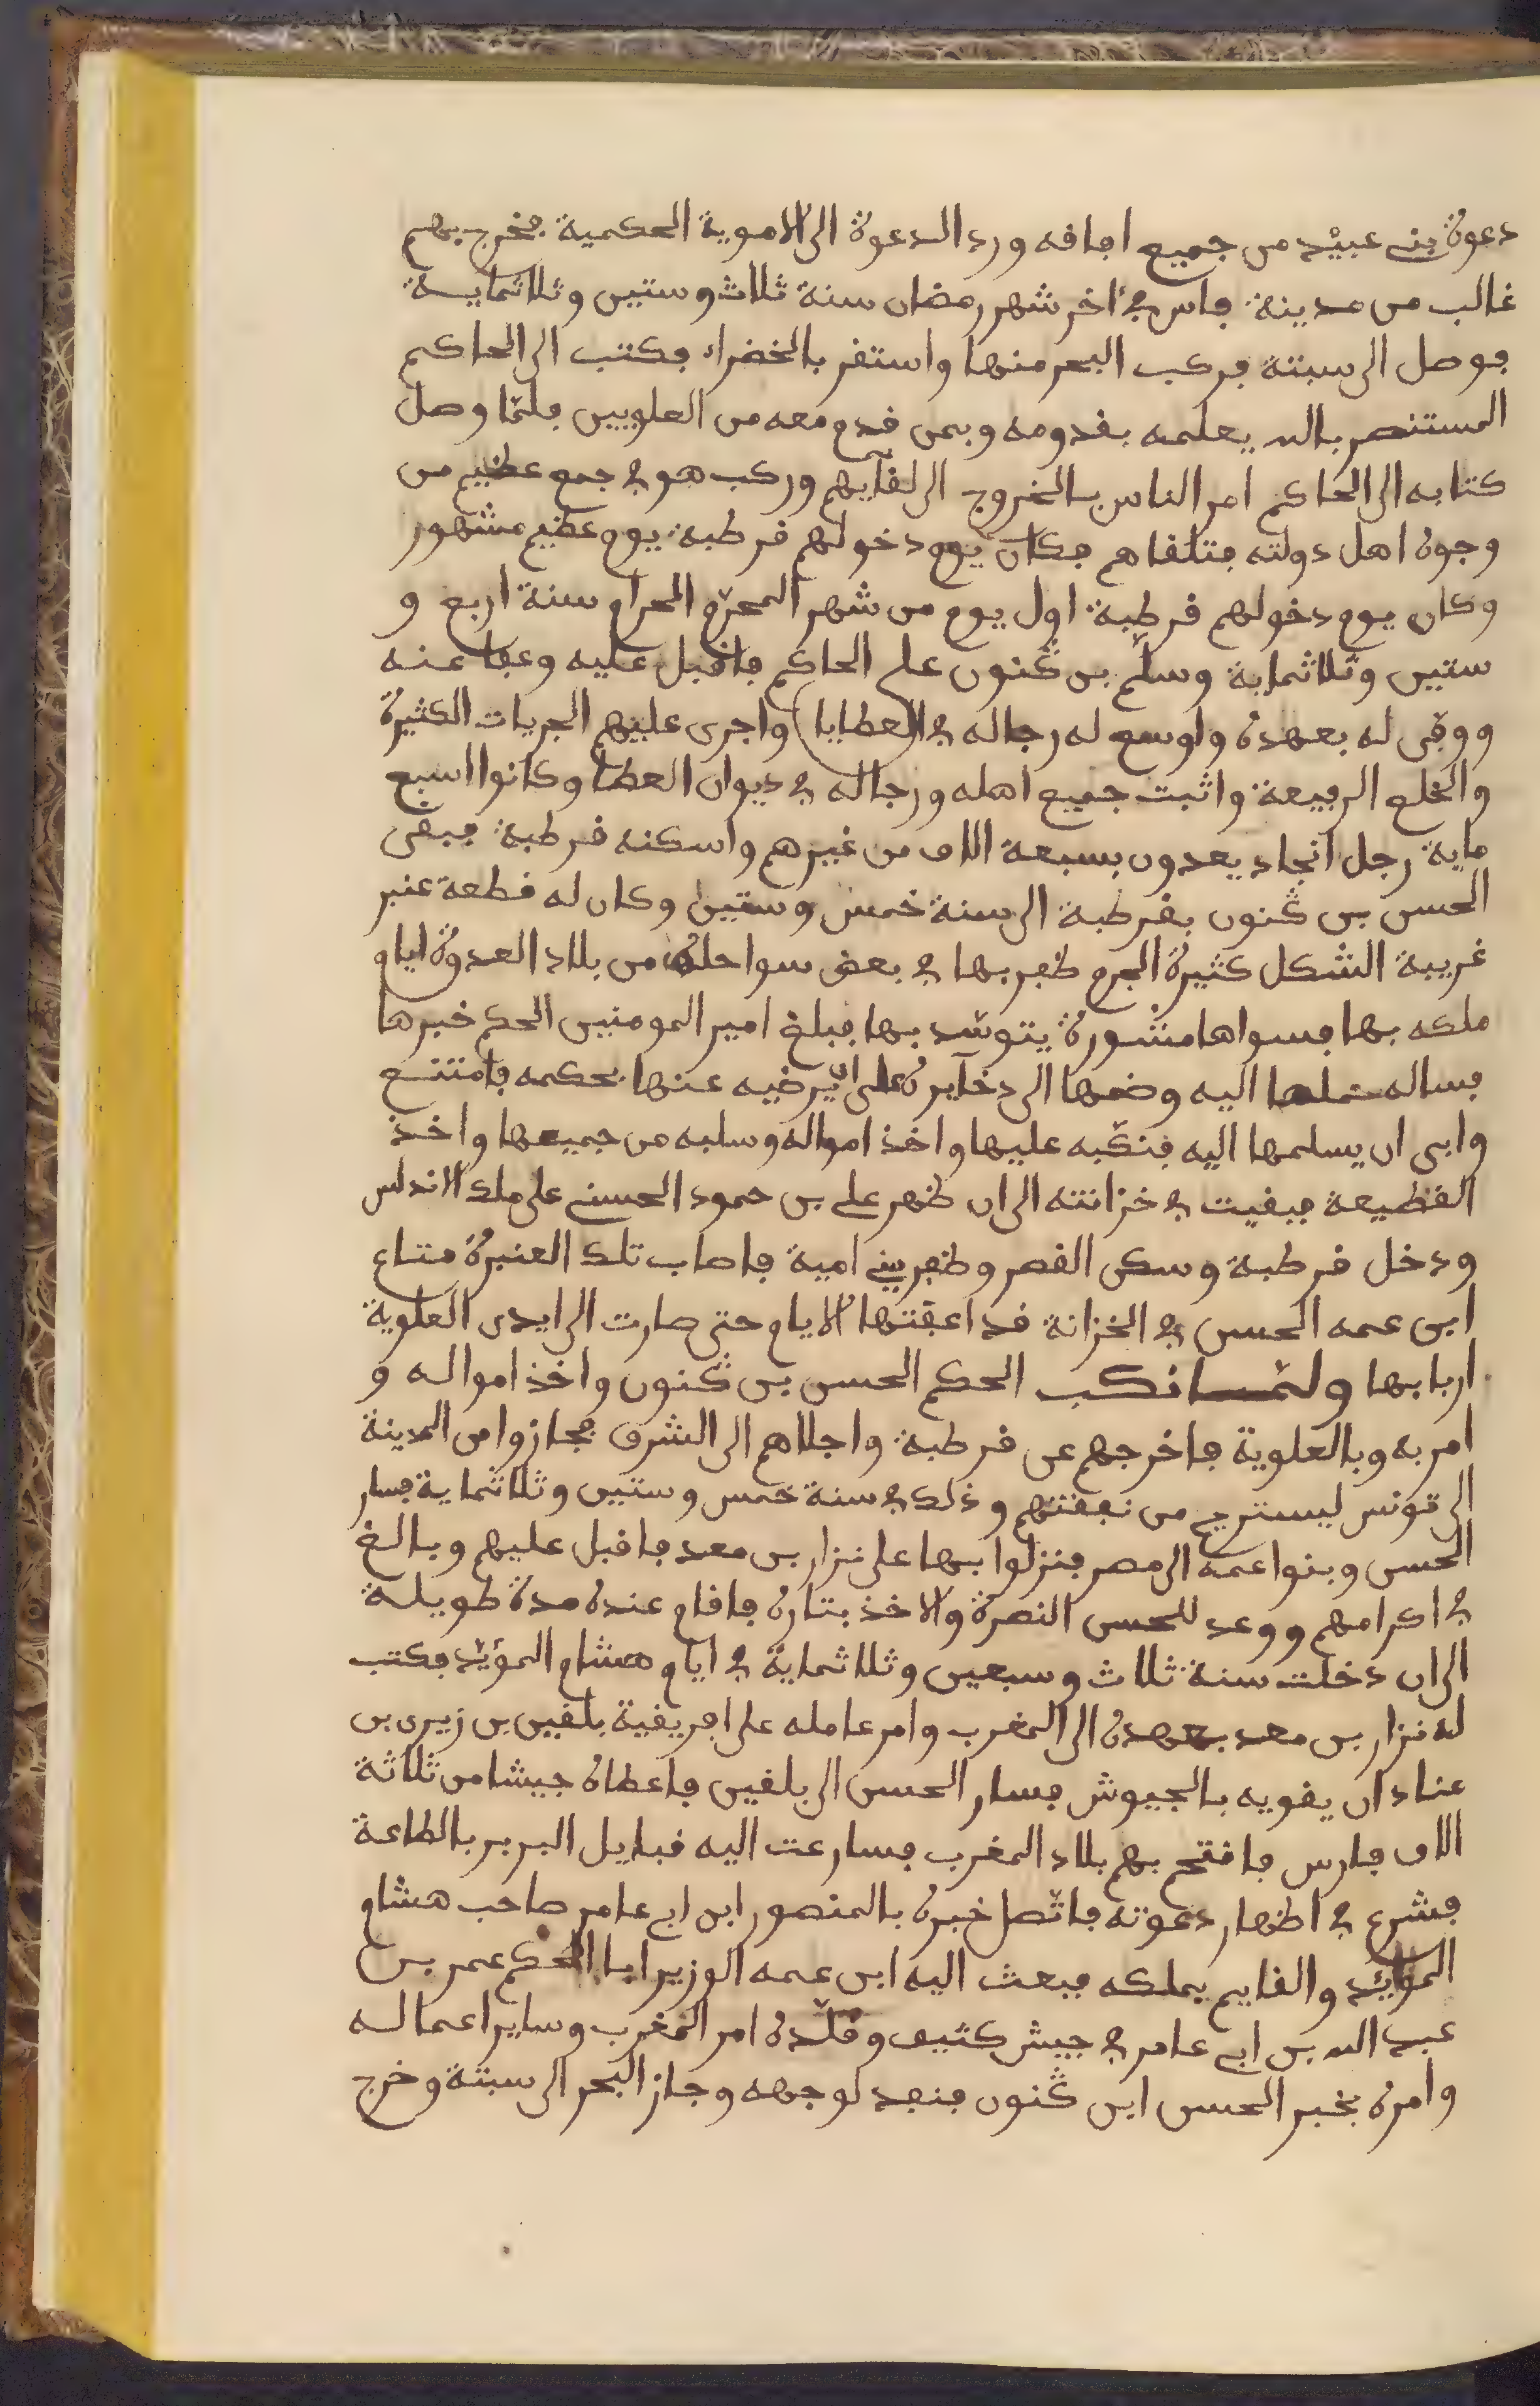 دعوة بني عبيد من جميع افافه ورد الدعوة الى الاموية الحكمية فخرج بهم
غالب من مدينة فاس في اخر شهر رمضان سنة ثلاث وستين وثلاثماية
فوصل الى سبتة فركب البحر منها واستقر بالخضراء فكتب الى الحاكم
المستنصر بالله يعلمه بقدومه وبمن قدم معه من العلويين فلمّا وصل
كتابه الى الحاكم امر الناس بالخروج الى لقآيهم وركب هو في جمع عظيم من
وجوه اهل دولته فتلقاهم فكان يوم دخولهم قرطبة يوم عظيم مشهور
وكان يوم دخولهم قرطبة اول يوم من شهر المحرّم الحرام سنة اربع و
ستين وثلاثماية وسلّم بن ڭنون على الحاكم فاقبل عليه وعفا عنه
ووفى له بعهده واوسع له رجاله في العطايا واجرى عليهم الجريات الكثيرة
والخلع الرفيعة واثبت جميع اهله ورجاله في ديوان العطا وكانوا السبع
ماية رجل انجاد يعدون بسبعة الاف من غيرهم واسكنه قرطبة فبقى
الحسن بن ڭنون بقرطبة الى سنة خمس وستين وكان له قطعة عنبر
غريبة الشكل كثيرة الجرم ظفر بها في بعض سواحله من بلاد العدوة ايام
ملكه بها فسواها منشورة يتوسّد بها فبلغ امير المومنين الحكم خبرها
فساله حملها اليه وضمها الى ذخآيره على ان يرضيه عنها بحكمه فامتنع
وابى ان يسلمها اليه فنكبه عليها واخذ امواله وسلبه من جميعها واخذ
القطيعة فبقيت في خزانته الى ان ظهر علي بن حمود الحسني على ملك الاندلس
ودخل قرطبة وسكن القصر وظفر ببني امية فاصاب تلك العنبرة متاع
ابن عمه الحسن في الخزانة قد اعقتها الايام حتى صارت الى ايدى العلوية
اربابها ولمّا نكب الحكم الحسن بن ڭنون واخذ امواله و
امر به وبالعلوية فاخرجهم عن قرطبة واجلاهم الى الشرق فجازوا من المرينة
الى تونس ليستريح من نفقتهم وذلك في سنة خمس وستين وثلاثماية فسار
الحسن وبنوا عمه الى مصر فنزلوا بها على نزار بن معد فاقبل عليهم وبالغ
في اكرامهم ووعد للحسن النصرة والاخذ بثاره فاقام عنده مدة طويلة
الى ان دخلت سنة ثلاث وسبعين وثلاثماية في ايام هشام المؤيّد فكتب
له نزار بن معد بعهده الى المغرب وامر عامله على افريقية بلقين بن زيرى بن
مناد ان يقويه بالجيوش فسار الحسن الى بلقين فاعطاه جيشا من ثلاثة
الاف فارس فافتتح بهم بلاد المغرب فسارعت اليه قبايل البربر بالطاعة
فشرع في اظهار دعوته فاتّصل خبره بالمنصور ابن ابي عامر صاحب هشام
المؤيّد والقايم بملكه فبعث اليه ابن عمه الوزير ابا الحكم عمر بن
عبد الله بن ابي عامر في جيش كثيف وقلّده امر المغرب وساير اعماله
وامره بخبر الحسن ابن ڭنون فنفد لوجهه وجاز البحر الى سبتة وخرج